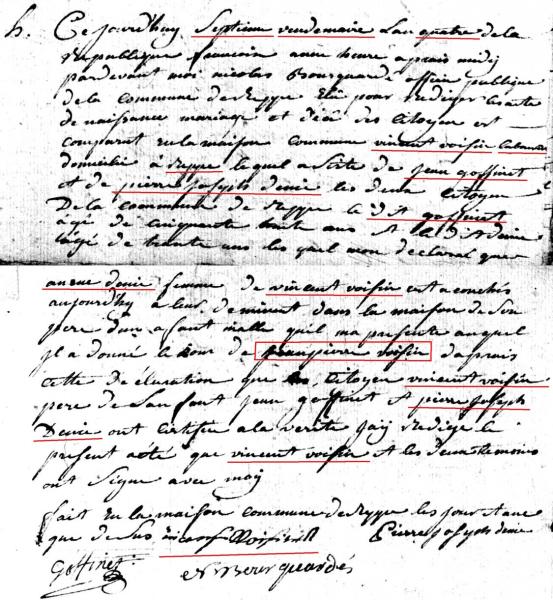 h. Ce jourdhuy Septieme vendemaire L'an quatre de la
Republique francoise anne heure apprais midy
pardevant moi nicolas Bourquarde officie publique
de la commune de Reppe Elû pour Rediger les acte
de naissance mariage et décé des Citoyen est
comparut en la maison commune vincent voisin
domicilié a reppe lequel assisté de jean goffinet
et de pierre Joseph denie les deux citoyen
De la commune de reppe le dit goffinet
agé de cinquante huite ans et le dit denie
lagé de trante ans les quel mon declarat que
denie femme de vincent voisin est acouchés
aujourdhy a leur de minuit dans la maison de son
pere dun afaant malle quil ma presente auquel
il a donné le nom de jeanpierre voisin dapprais
cette declaration que les citoyen vincent voisin
pere de Lanfant jean goffinet et pierre joseph
Denie ont certifie a la verité jaij redigé le
present acté que vincent voisin et les deux temoins
ont signe avec moy
fait en la maison commune de reppe les jour et ane
que de sus vincent Voisin Pierre joseph denie
Goffinet N Bourquardés